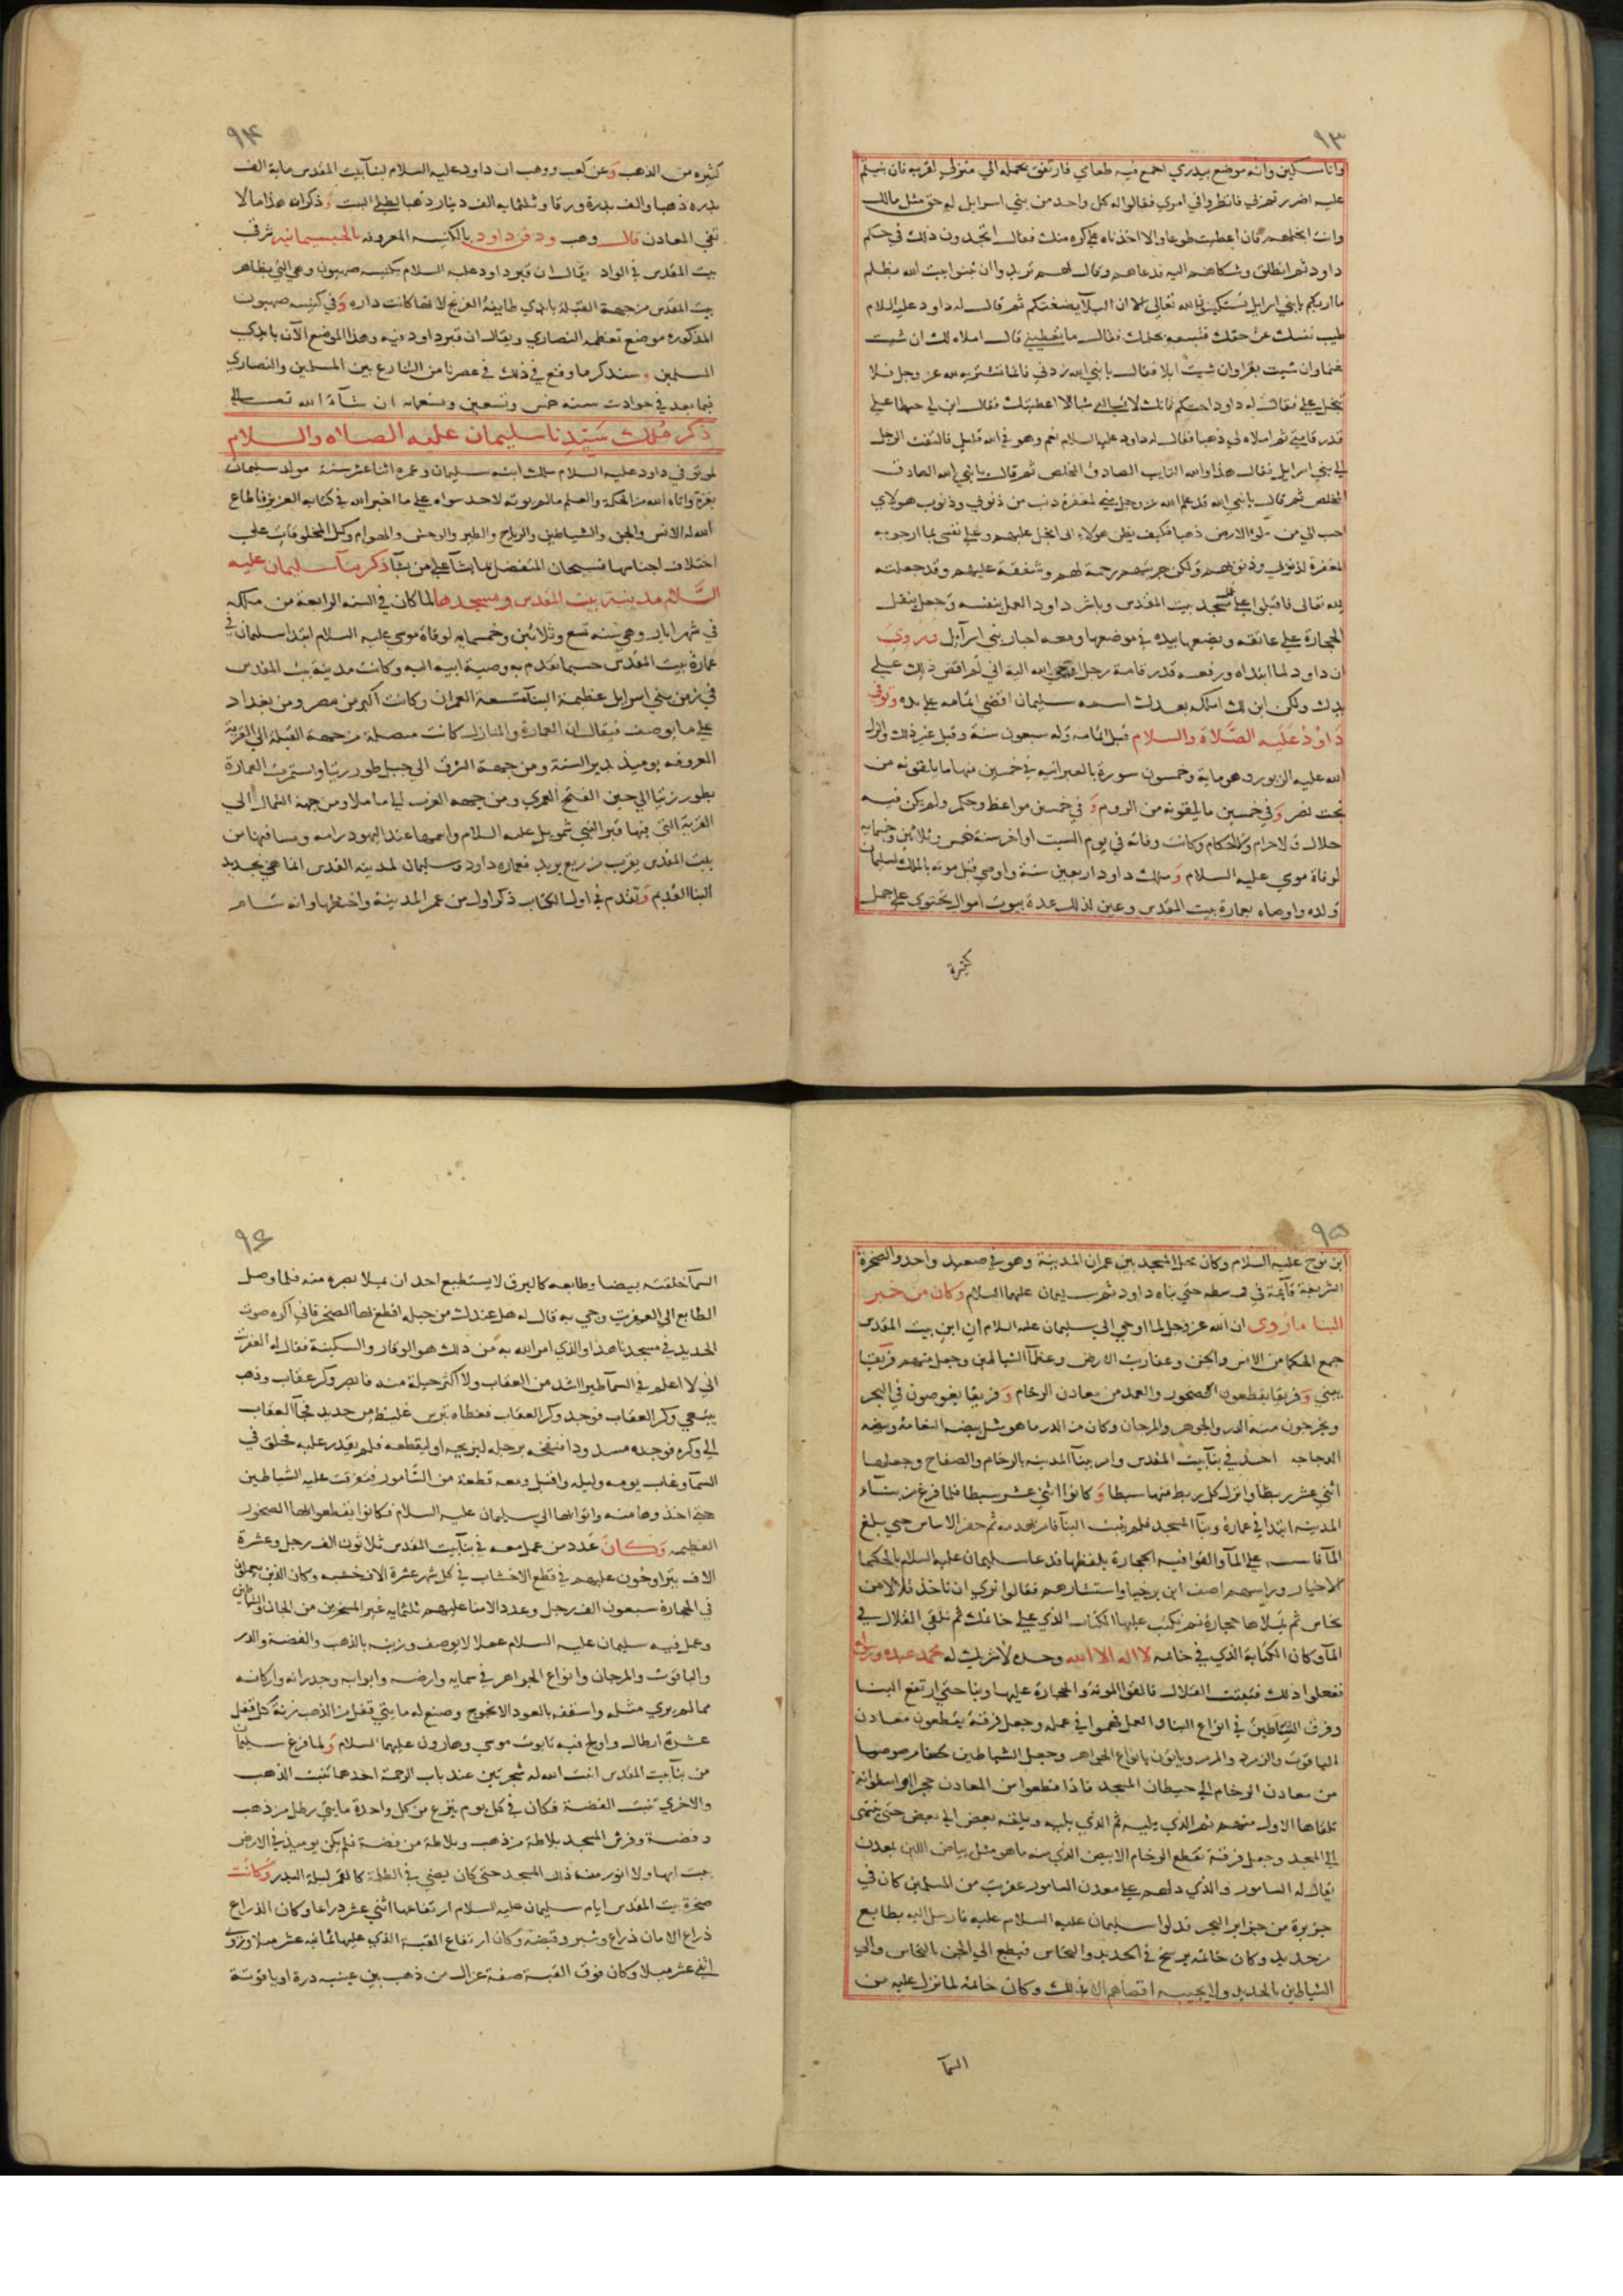 ٩٣
وانا مسكين وانه موضع بيدري اجمع فيه طعامي فارتفق بحمله الي منزلي لقربه فان بنيتم
عليه اضررتم بي فانظروا في امري فقالوا له كل واحد من بني اسرايل له حق مثل مالك
وانت ابخلهم فان اعطيت طوعا والا اخذناه علي كره منك فقال اتجدون ذلك في حكم
داود ثم انطلق وشكاهم اليه فدعاهم وقال لهم تريدوا ان تبنوا بيت الله بظلم
ما اراكم يا بني اسرايل الله تعالي ثم قال له داود عليه السلام
طيب نفسك عن حقك فتبيعه بحكمك فقال ما تعطيني قال املاه لك ان شيت
غنما وان شيت بقرا وان شيت ابلا فقال يا نبي الله زدني فانما تشتريه لله عز وجل فلا
تبخل علي فقال له داود احتكم فانك لا تسالني شيا الا اعطيتك فقال ابن لي حيطا علي
قدر قامتي ثم املاه لي ذهبا فقال له داود عليه السلام نعم وهو في الله قليل فالتفت الرجل
الي بني اسرايل فقال هذا والله التايب الصادق المخلص ثم قال يا نبي الله الصادق
المخلص ثم قال يا نبي الله قد علم الله عز وجل مني لمغفرة ذنب من ذنوبي وذنوب هولاي
احب الي من ملو الارض ذهبا فكيف يظن هولاء اني ابخل عليهم وعلي نفسي بما ارجو به
المغفرة لذنوبي وذنوبهم ولكن جربتهم رحمة لهم وشفقة عليهم وقد جعلته
لله تعالي فاقبلوا علي عمل مسجد بيت المقدس وباشر داود العمل بنفسه وجعل ينقل
الحجارة علي عاتقه ويضعها بيده في موضعها ومعه احبار بني اسرآيل فروي
ان داود لما ابتداه ورفعه قدر قامة رجل اوحي الله اليه اني لم اقض ذلك علي
يدك ولكن ابن لك املكه بعدك اسمه سليمان اقضي اتمامه علي يده وتوفي
داود عليه الصلاة والسلام قبل اتمامه وله سبعون سنة وقيل غير ذلك وانزل
الله عليه الزبور وهو ماية وخمسون سورة بالعبرانيه في خمسين منها ما يلقونه من
بخت نصر وفي خمسين ما يلقونه من الروم وفي خمسين مواعظ وحكم ولم يكن فيه
حلال ولا حرام ولا احكام وكانت وفاته في يوم السبت اواخر سنة خمس وثلاثين وخمسمايه
لوفاة موسي عليه السلام وملك داود اربعين سنة واوصي قبل موته بالملك لسليمان
ولده واوصاه بعمارة بيت المقدس وعين لذلك عدة بيوت اموال يحتوي علي جمل
كثيرة
٩٤
كثيره من الذهب وعن كعب ووهب ان داود عليه السلام لبنآ بيت المقدس ماية الف
بدره ذهبا والف بدرة ورقا وثلثمايه الف دينار ذهبا لطلي البيت وذكرانه هذا ما لا
تفي المعادن قال وهب ودفن داود بالكنيسه المعروفه بالجيسمانيه شرقي
بيت المقدس في الواد يقال ان قبر داود عليه السلام بكنيسه صهيون وهي التي بظاهر
بيت المقدس من جهة القبلة بايدي طايفة الفرنج لانها كانت داره وفي كنيسه صهيون
المذكوره موضع تعظمه النصاري ويقال ان قبر داود فيه وهذا الموضع الآن بايدي
المسلمين وسنذكر ما وقع في ذلك في عصرنا من التنازع بين المسلمين والنصاري
فيما بعد في حوادث سنه خمس وتسعين وثمنمايه ان شآء الله تعالي
ذكر ملك سيدنا سليمان عليه الصلاه والسلام
لما توفي داود عليه السلام ملك ابنه سليمان وعمره اثنا عشر سنة مولد سليمان
بغزة واتاه الله من الحكمة والعلم ما لم يوته لاحد سواه علي ما اخبر الله في كتابه العزيز فاطاع
الله له الانس والجن والشياطين والرياح والطير والوحش والهوام وكل المخلوقات علي
اختلاف اجناسها فسبحان المتفضل بما يشآ علي من يشآ ذكر بنآ سليمان عليه
السلام مدينة بيت المقدس ومسجدها لما كان في السنه الرابعة من ملكه
في شهر ايار وهي سنه تسع وثلاثين وخمسمايه لوفاة موسي عليه السلام ابتدا سليمان في
عمارة بيت المقدس حسبما تقدم به وصية ابيه اليه وكانت مدينة بيت المقدس
في زمن بني اسرايل عظيمة البنآ متسعة العمران وكانت اكبر من مصر ومن بغداد
علي ما يوصف فيقال ان العمارة والمنازل كانت متصلة من جهة القبلة الي القرية
المعروفه يوميذ بدير السنة ومن جهة الشرق الي جبل طور زيتا واستمرت العمارة
بطور زيتا الي حين الفتح العمري ومن جهه الغرب الي ماملا ومن جهة الشمال الي
القرية التي فيها قبر النبي شمويل عليه السلام واسمها عند اليهود رامه ومسافتها من
بيت المقدس يقرب من ربع بريد فعماره داود وسليمان لمدينه القدس انما هي تجديد
البنا القديم وتقدم في اول الكتاب ذكر اول من عمر المدينة واختطها وانه سام
٩٥
ابن نوح عليه السلام وكان محل المسجد بين عمران المدينة وهو في صعيد واحد والصخرة
الشريفة قآيمة في وسطه حتي بناه داود ثم سليمان عليهما السلام وكان من خبر
البنا ما روي ان الله عز وجل لما اوحي الي سليمان عليه السلام ان ابن بيت المقدس
جمع الحكما من الانس والجن وعفاريت الارض وعظمآ الشياطين وجعل منهم فريقا
يبني وفريقا يقطعون الصخور والعمد من معادن الرخام وفريقا يغوصون في البحر
ويخرجون منه الدر والجوهر والمرجان وكان من الدر ما هو مثل بيضه النعامة وبيضه
الدجاجه اخذ في بنآ بيت المقدس وامر ببنآ المدينه بالرخام والصفاح وجعلها
اثني عشر ربطا وانزل كل ربط منها سبطا وكانوا اثني عشر سبطا فلما فرغ من بنآ
المدينه ابتدا في عمارة وبنآ المسجد فلم يثبت البنآ فامر بهدمه ثم حفر الاساس حتي بلغ
المآ فاسسه علي المآ والقوا فيه الحجارة يلفظها فدعا سليمان عليه السلام بالحكما
الاخيار وراسهم اصف ابن برخيا واستشارهم فقالوا نري ان تاخذ قلالا من
نحاس ثم تملاها حجارة ثم تكتب عليها الكتاب الذي علي خاتمك ثم تلقي القلال في
المآ وكان الكتابة الذي في خاتمه لا اله الا الله وحده لا شريك له محمد عبده ورسوله
ففعلوا ذلك فثبتت القلال فالقوا المونة والحجارة عليها وبنا حتي ارتفع البنا
وفرق الشياطين في انواع البنا والعمل فجموا في عمله وجعل فرقة يقطعون معادن
الياقوت والزمرد والدر وياتون بانواع الجواهر وجعل الشياطين صفا مرصوصا
من معادن الرخام الي حيطان المسجد فاذا قطعوا من المعادن حجرا او اسطوانه
تلقاها الاول منهم ثم الذي يليه ثم الذي يليه ويلقه بعض الي بعض حتي تنتهي
الي المسجد وجعل فرقة تقطع الرخام الابيض الذي منه ما هو مثل بياض اللبن بمعدن
يقال له السامور والذي دلهم علي معدن السامور عفريت من المسلمين كان في
جزيرة من جزاير البحر فدلوا سليمان عليه السلام عليه فارسل اليه بطابع
من حديد وكان خاتمه يرسخ في الحديد والنحاس فيطبع الي الجن بالنحاس والي
الشياطين بالحديد ولا يجيبه اقصاهم الا بذلك وكان خاتمه لما نزل عليه من
السمآ
٩٦
السمآ حلقته بيضا وطابعه كالبرق لا يستطيع احد ان يملا بصره منه فلما وصل
الطابع الي العفريت وجي به قال له هل عندك من حيله اقطع لها الصخر فاني اكره صوت
الحديد في مسجدنا هذا والذي امر الله به من ذلك هو الوقار والسكينة فقال له العفريت
اني لا اعلم في السمآ طيرا اشد من العقاب ولا اكثر حيلة منه فابصر وكر عقاب وذهب
يبتغي وكر العقاب فوجد وكر العقاب فغطاه بترس غليظ من حديد فجآ العقاب
الي وكره فوجده مسدودا فنفخه برجله ليزيحه او ليقطعه فلم يقدر عليه فحلق في
السمآ وغاب يومه وليله واقبل ومعه قطعة من السامور فتفرقت عليه الشياطين
حتي اخذوها منه واتوا بها الي سليمان عليه السلام فكانوا يقطعوا بها الصخور
العظيمه وكان عدد من عمل معه في بنآ بيت المقدس ثلاثون الف رجل وعشرة
الاف يتراوحون عليهم في قطع الاخشاب في كل شهر عشرة الاف خشبه وكان الذين يعملون
في الحجارة سبعون الف رجل وعدد الامنا عليهم ثلثمايه غير المسخرين من الجان والشياطين
وعمل فيه سليمان عليه السلام عملا لا يوصف وزينه بالذهب والفضة والدر
والياقوت والمرجان وانواع الجواهر في سمايه وارضه وابوابه وجدرانه واركانه
مما لم يري مثله واسقفه بالعود الانجوج وصنع له مايتي قفل من الذهب زنة كل قفل
عشرة ارطال واولج فيه تابوت موسي وهارون عليهما السلام ولما فرغ سليمان
من بنآ بيت المقدس انبت الله له شجرتين عند باب الرحمة احدهما تنبت الذهب
والاخري تنبت الفضة فكان في كل يوم ينزع من كل واحدة مايتي رطل من ذهب
وفضة وفرش المسجد بلاطة من ذهب وبلاطة من فضة فلم يكن يوميذ في الارض
بيت ابها ولا انور منه ذلك المسجد حتي كان يضي في الظلمة كالقمر ليلة البدر وكانت
صخرة بيت المقدس ايام سليمان عليه السلام ارتفاعها اثني عشر ذراعا وكان الذراع
ذراع الامان ذراع وشبر وقبضه وكان ارتفاع القبه الذي عليها ثمانيه عشر ميلا وروي
اثني عشر ميلا وكان فوق القبة صفة غزال من ذهب بين عينيه درة او ياقوتة